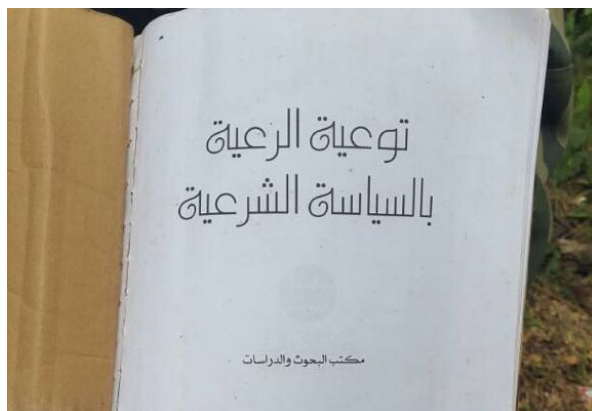 توعية الرعية
بالسياسة الشرعية
مكتب البحوث والدراسات